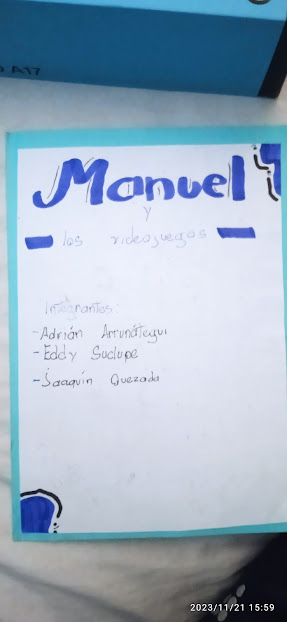 A17
Manuel
y
los videojuegos
Integrantes:
- Adrián Arrunátegui
- Eddy Suclupe
- Joaquín Quezada
2023/11/21 15:59